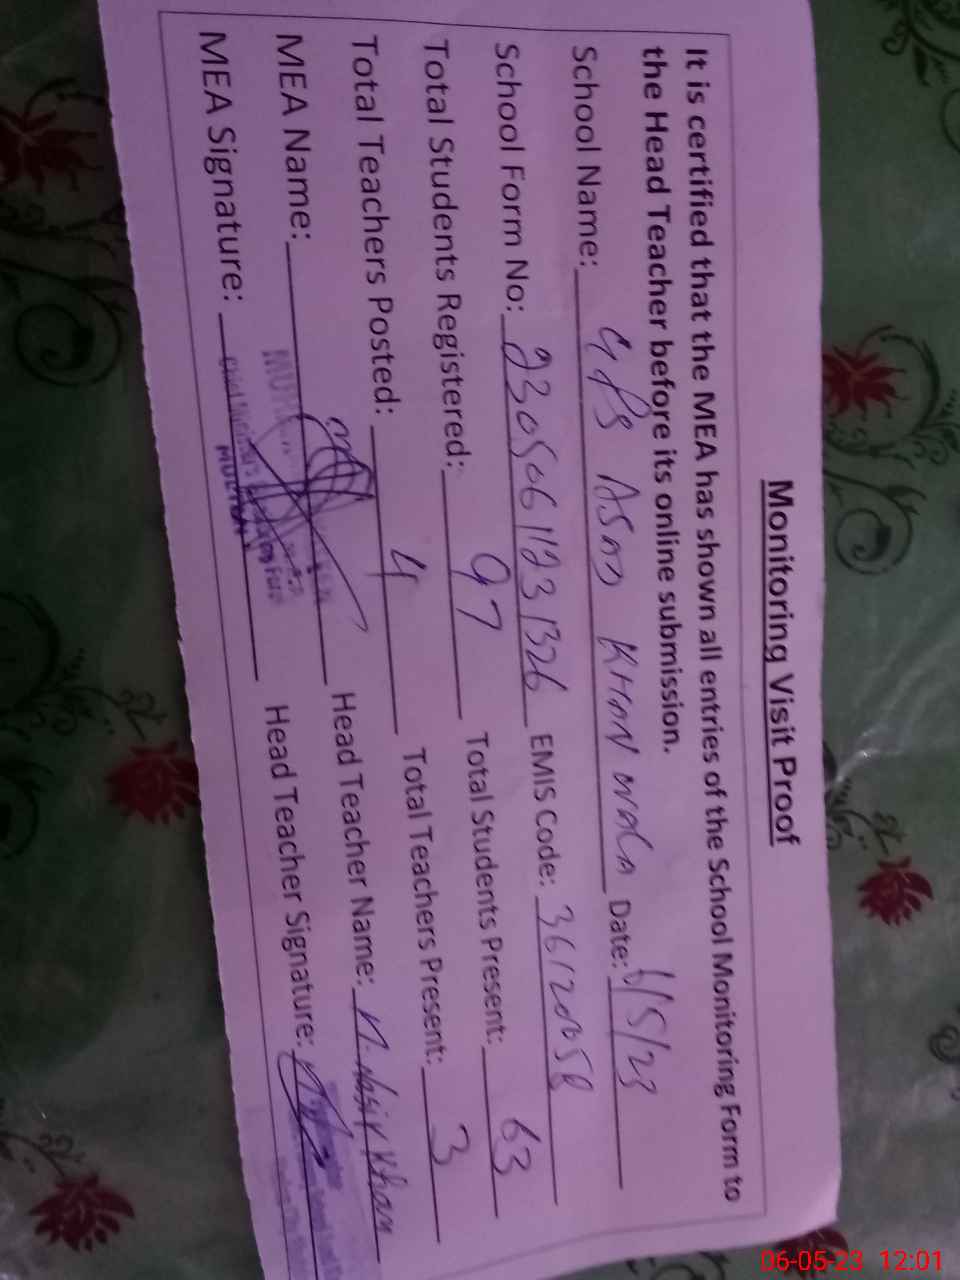 Monitoring Visit Proof
It is certified that the MEA has shown all entries of the School Monitoring Form to
the Head Teacher before its online submission.
School Name: GPS ASAD KHAN WALA Date: 6/5/23
School Form No: 23050611231326 EMIS Code: 36120058
Total Students Registered: 97 Total Students Present: 63
Total Teachers Posted: 4 Total Teachers Present: 3
MEA Name: Head Teacher Name: M. Nasir Khan
MEA Signature: Head Teacher Signature:
06-05-23 12:01